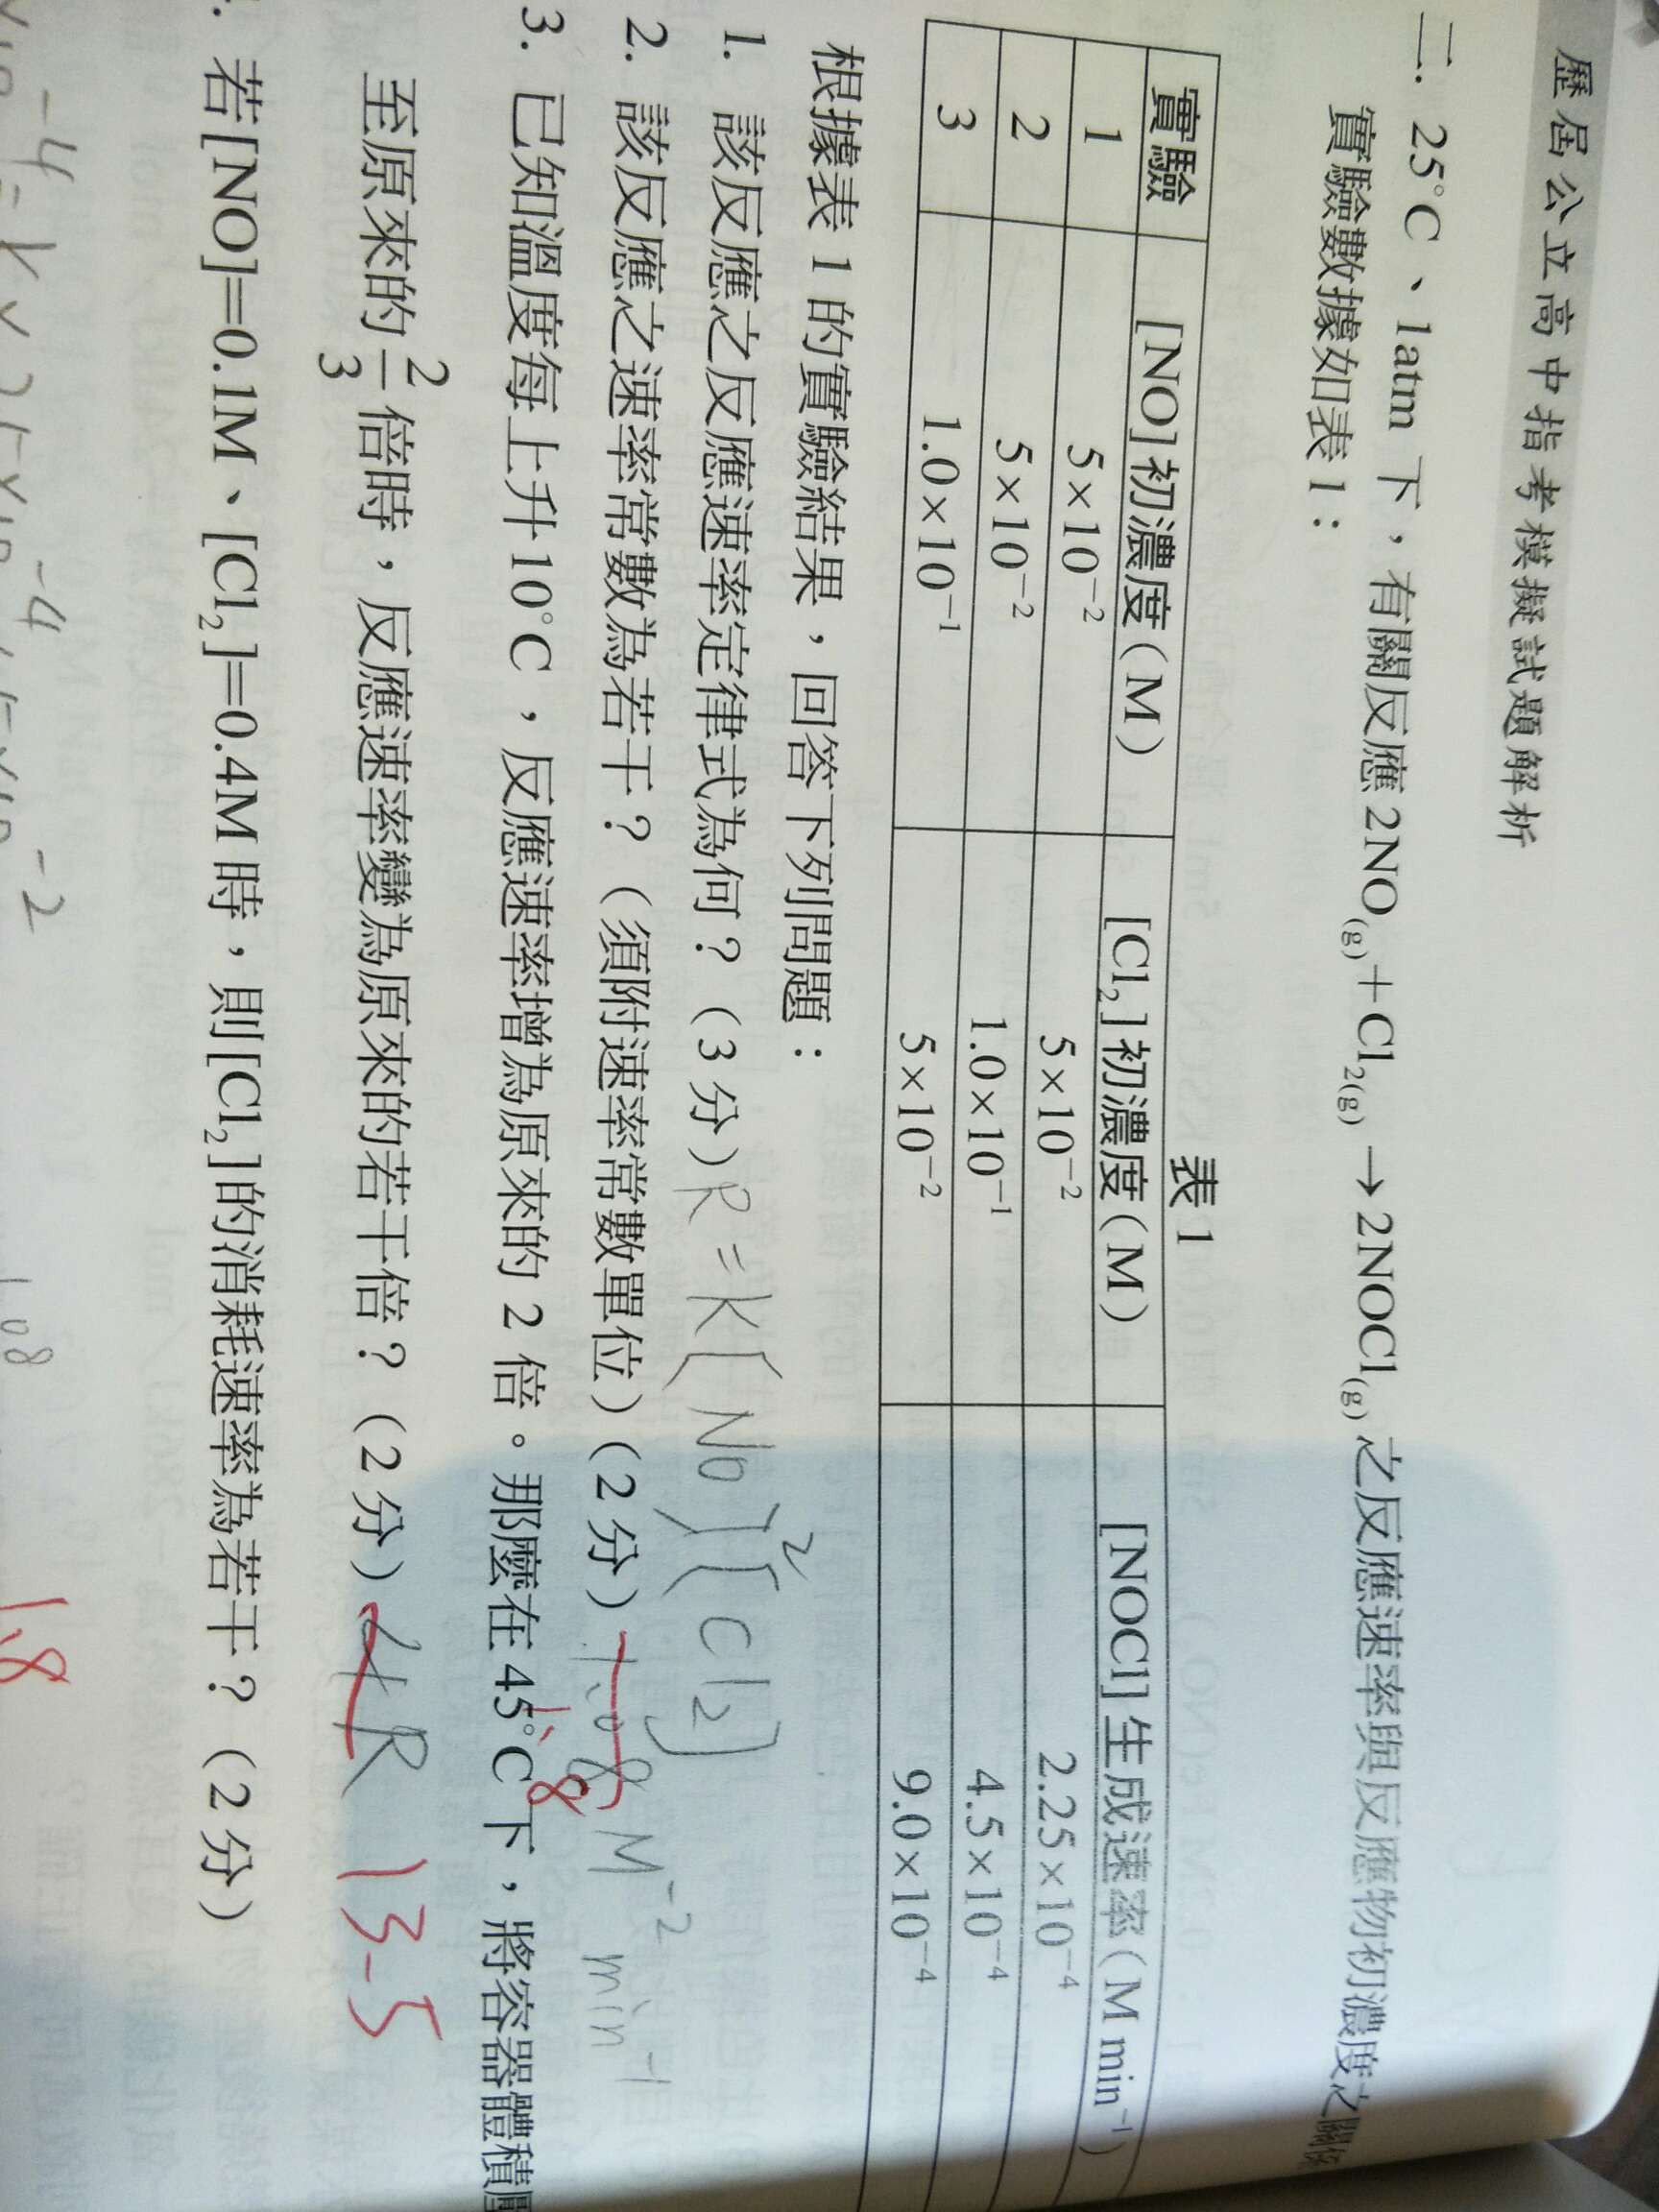 歷屆公立高中指考模擬試題解析
二. 25°C、1atm 下，有關反應 2NO(g)＋Cl2(g) →2NOCl(g) 之反應速率與反應物初濃度之關係
實驗數據如表 1：
表 1
實驗 [NO]初濃度(M) [Cl2]初濃度(M) [NOCl]生成速率(M min⁻¹)
1 5×10⁻² 5×10⁻² 2.25×10⁻⁴
2 5×10⁻² 1.0×10⁻¹ 4.5×10⁻⁴
3 1.0×10⁻¹ 5×10⁻² 9.0×10⁻⁴
根據表 1 的實驗結果，回答下列問題：
1. 該反應之反應速率定律式為何？（3 分）R=K[NO]²[Cl2]
2. 該反應之速率常數為若干？（須附速率常數單位）（2 分） M⁻² min⁻¹
1.8
3. 已知溫度每上升 10°C，反應速率增為原來的 2 倍。那麼在 45°C 下，將容器體積
至原來的 2/3 倍時，反應速率變為原來的若干倍？（2 分）4R 13.5
. 若[NO]=0.1M、[Cl2]=0.4M 時，則[Cl2]的消耗速率為若干？（2 分）
1.8